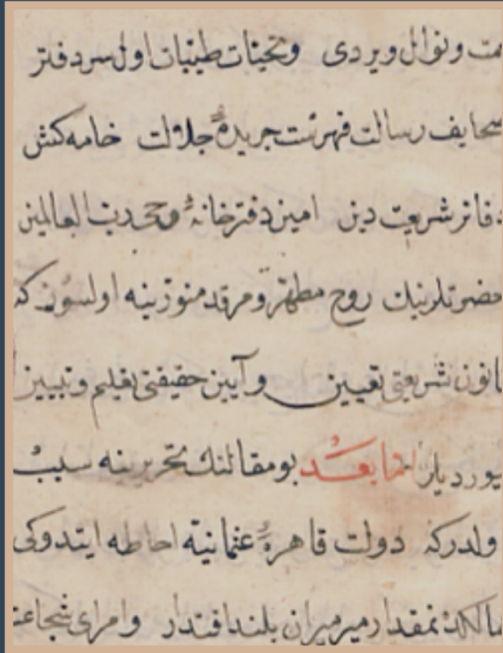 ونوال ویردی وتحیات طیبات اول سردفتر
صحایف رسالت فهرست جریدۀ جلالت خامه کش
دفاتر شریعت دین امین دفترخانۀ وحی رب العالمین
حضرتلرینك روح مطهر ومرقد منورینه اولسون که
قانون شریعتی تعیین وآیین حقیقتی تعلیم وتبیین
بوردیلر اما بعد بو مقالنك تحریرینه سبب
اولدرکه دولت قاهرۀ عثمانیه احاطه ایتدوکی
میرمیران بلند اقتدار وامرای